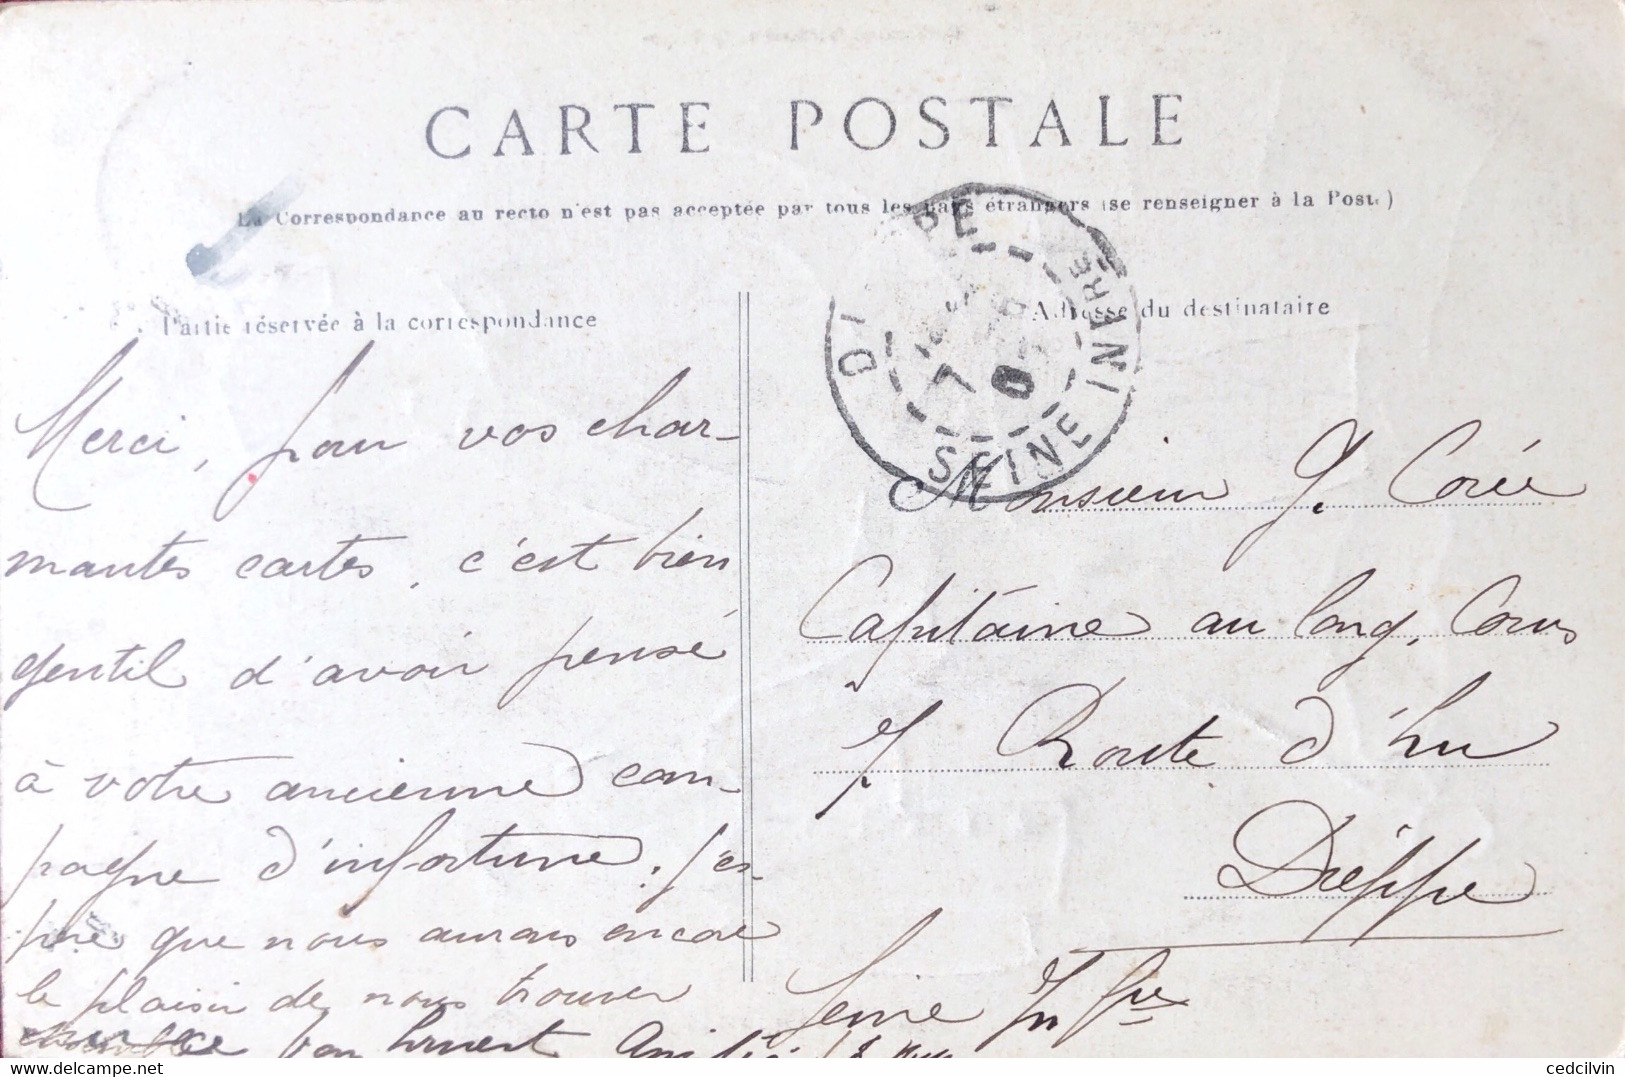 CARTE POSTALE
La Correspondance au recto n'est pas acceptée par tous les pays étrangers (se renseigner à la Poste)
Partie réservée à la correspondance
Adresse du destinataire
DIEPPE
7
SEINE INFRE
Merci, pour vos char-
mantes cartes, c'est bien
gentil d'avoir pensé
à votre ancienne com-
pagne d'infortune. J'es-
père que nous aurons encore
le plaisir de nous trouver
Monsieur G. Corée
Capitaine au long, Cours
7. Route d'Eu
Dieppe
Seine Infre
cedcilvin